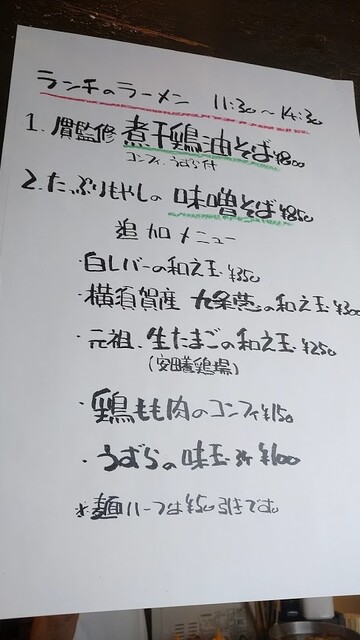 ランチのラーメン 11:30～14:30
1. 贋監修 煮干鶏油そば ¥800
コンフィ.うずら付
2. たっぷりもやしの 味噌そば ¥850
追加メニュー
・白レバーの和え玉 ¥350
・横須賀産 九条葱の和え玉 ¥300
・元祖.生たまごの和え玉 ¥250
(安田養鶏場)
・鶏もも肉のコンフィ ¥150
・うずらの味玉 3ヶ ¥100
※麺ハーフは¥50引きです